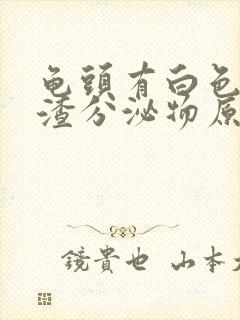 龟頭有白色
渣分泌物原
鏡貴也 山本